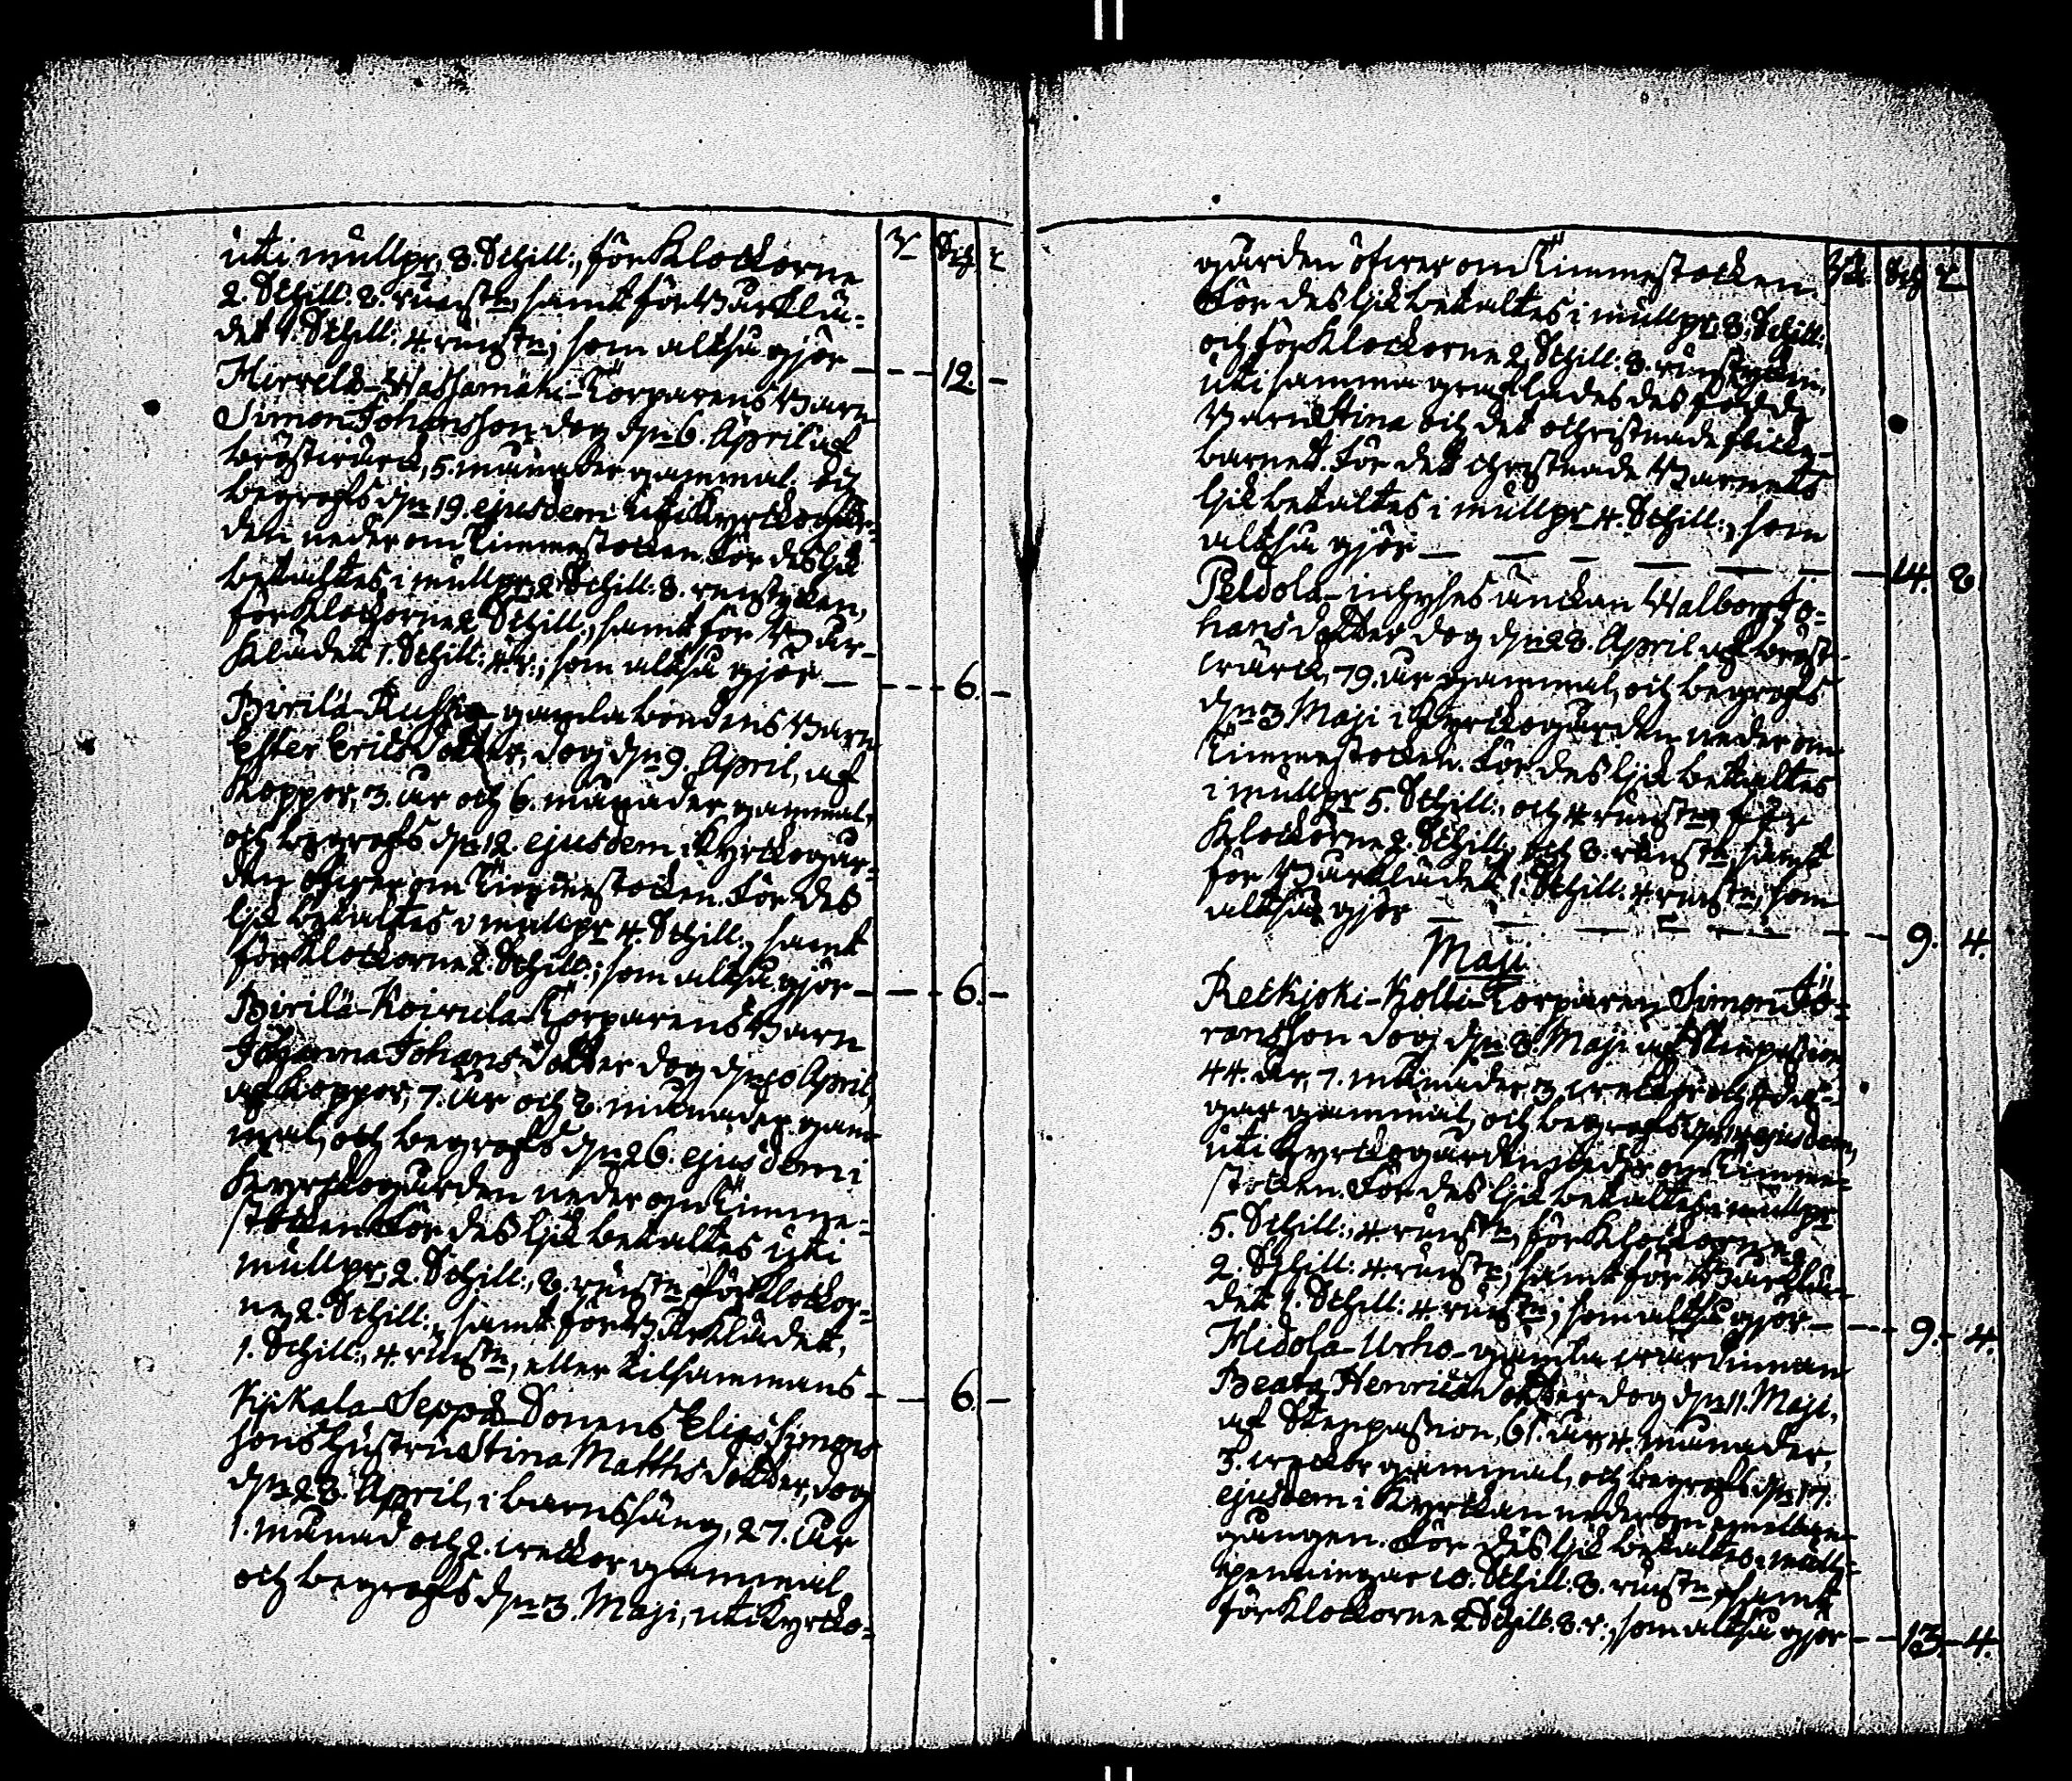 uti mullpr, 8. Schill:, för Klockorne
2. Schill: 8. runstn, samt för Bårklä-
det 1. Schill: 4 runstn; som altså gjör --- 12. -
Hirvelä-Wassamäki-Torparens Barn
Simon Johansson, dog dn 6. April af
bröstwärck, 5. månader gammal. och
begrofs dn 19. ejusdem uti Kyrckogår-
den neder om Timmestocken. För des lijk
betaltes i mullpr, 2 Schill: 8. runstycken,
för Klockorne 2 Schill:, samt för Bår-
klädet 1. Schill: 4 r:, som altså gjör --- 6. -
Birilä- gamla bondens Barn
Ester Ericsdotter, dog dn 9. April, af
Koppor, 3. år och 6. månader gammal,
och begrofs dn 12. ejusdem i Kyrckogår-
den öfwer om Timmestocken. För des
lijk betaltes i mullpr 4. Schill:, samt
för Klockorne 2. Schill:; som altså gjör --- 6. -
Birilä-Koivula-Torparens Barn
Johanna Johansdotter dog dn 10 April,
af Koppor, 7. år och 8. månader gam-
mal, och begrofs dn 26. ejusdem i
Kyrckogården neder om Timme-
stocken. För des lijk betaltes uti
mullpr, 2. Schill:, 8. runstn, för Klockor-
ne, 2. Schill:, samt för Bårklädet,
1. Schill:, 4. runstn, eller tilsammans --- 6. -
Kijkala-Seppä-Sonens Elias Simons
sons hustru Stina Matthsdotter, dog
dn 23. April, i barnsäng, 27. år
1. månad och 2. weckor gammal,
och begrofs dn 3. Maji, uti Kyrcko-
gården öfwer om Timmestocken.
För des lijk betaltes i mullpr, 8. Schill:
och för Klockorne 2 Schill: 8. runstycken,
uti samma graf lades des födde
Barn Stina och det ochristnade flicke-
barnet. För det christnade Barnets
lijk betaltes i mullpr 4. Schill:, som
altså gjör --- 14. 8.
Peldola-inhyses änckan Walborg Jo-
hansdotter dog dn 28. April af bröst-
wärck, 79. år gammal, och begrofs
dn 3 Maji i Kyrckogården neder om
Timmestocken. För des lijk betaltes
i mullpr 5. Schill:, och 4 runstn, för
Klockorne 2. Schill, och 8. runstn, samt
för Bårklädet 1. Schill: 4 runstn, som
altså gjör --- 9. 4.
Maji
Reckjoki-Kolli-Torparen Simon Jö-
ransson dog dn 8. Maji af Stenpassion,
44. år, 7. månader, 3 weckor och 4 da-
gar gammal, och begrofs ejusdem,
uti Kyrckogården neder om Timme-
stocken. För des lijk betaltes i mullpr
5. Schill:, 4 runstn, för Klockorne
2. Schill: 4 runstn, samt för Bårklä-
det 1. Schill: 4 runstn; som altså gjör --- 9. 4.
Hidola-Urho-gamla wärdinnan
Beata Henricsdotter dog dn 11. Maji,
af Stenpassion, 61. år, 4. månader,
3. weckor gammal, och begrofs dn 17.
ejusdem i Kyrckan neder om mellan-
gången. För des lijk betaltes i mull-
penningar 10. Schill: 8. runstn, samt
för Klockorne 2 Schill: 8. r:, som altså gjör --- 13. 4.